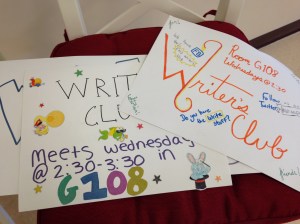 WRIT
CLU
Meets Wednesday
@ 2:30-3:30 in
G108
Room G108
Wednesdays @ 2:30
Writer's
Club
Do you have
the write
stuff?
Follow
Twitter